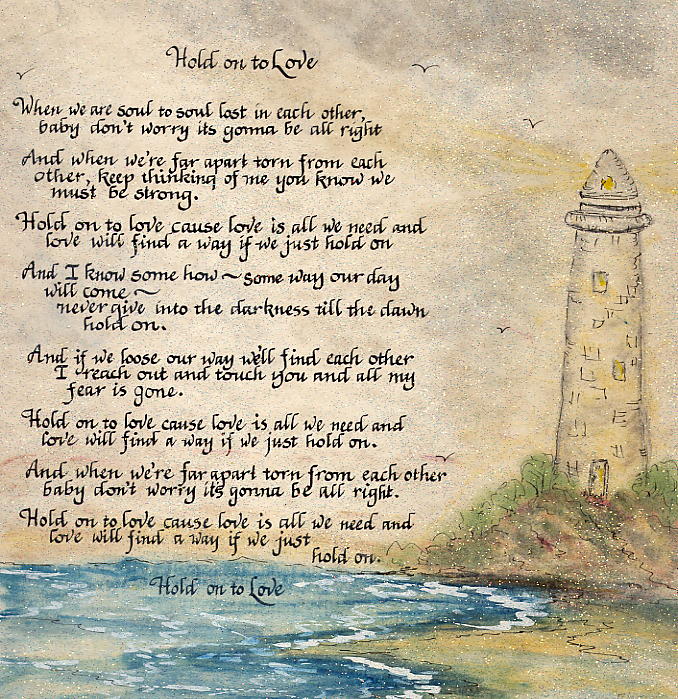 Hold on to Love
When we are soul to soul lost in each other,
baby don't worry its gonna be all right
And when we're far apart torn from each
other, keep thinking of me you know we
must be strong.
Hold on to love cause love is all we need and
love will find a way if we just hold on
And I know some how ~ some way our day
will come ~
never give into the darkness till the dawn
hold on.
And if we loose our way we'll find each other
I reach out and touch you and all my
fear is gone.
Hold on to love cause love is all we need and
love will find a way if we just hold on.
And when we're far apart torn from each other
baby don't worry it's gonna be all right.
Hold on to love cause love is all we need and
love will find a way if we just
hold on.
Hold on to Love